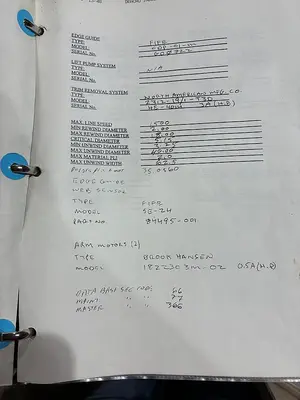 EDGE GUIDE
TYPE: FIFE
MODEL:
SERIAL No.
LIFT PUMP SYSTEM
TYPE: N/A
MODEL:
SERIAL No.
TRIM REMOVAL SYSTEM
TYPE: NORTH AMERICAN MFG. CO.
MODEL:
SERIAL No.
MAX. LINE SPEED 1500
MIN REWIND DIAMETER 6.00
MAX REWIND DIAMETER
CRITICAL DIAMETER
MIN UNWIND DIAMETER
MAX UNWIND DIAMETER 60.00
MAX MATERIAL PLI
MAX UNWIND WIDTH 62.5
35.0560
EDGE GUIDE
WEB SENSOR
TYPE FIFE
MODEL SE-24
PART NO. 84495-001
ARM MOTORS (2)
TYPE BROOK HANSEN
MODEL 0.5A (M.B)
DATA BASE SEC 66
MAINT " " 77
MASTER " "